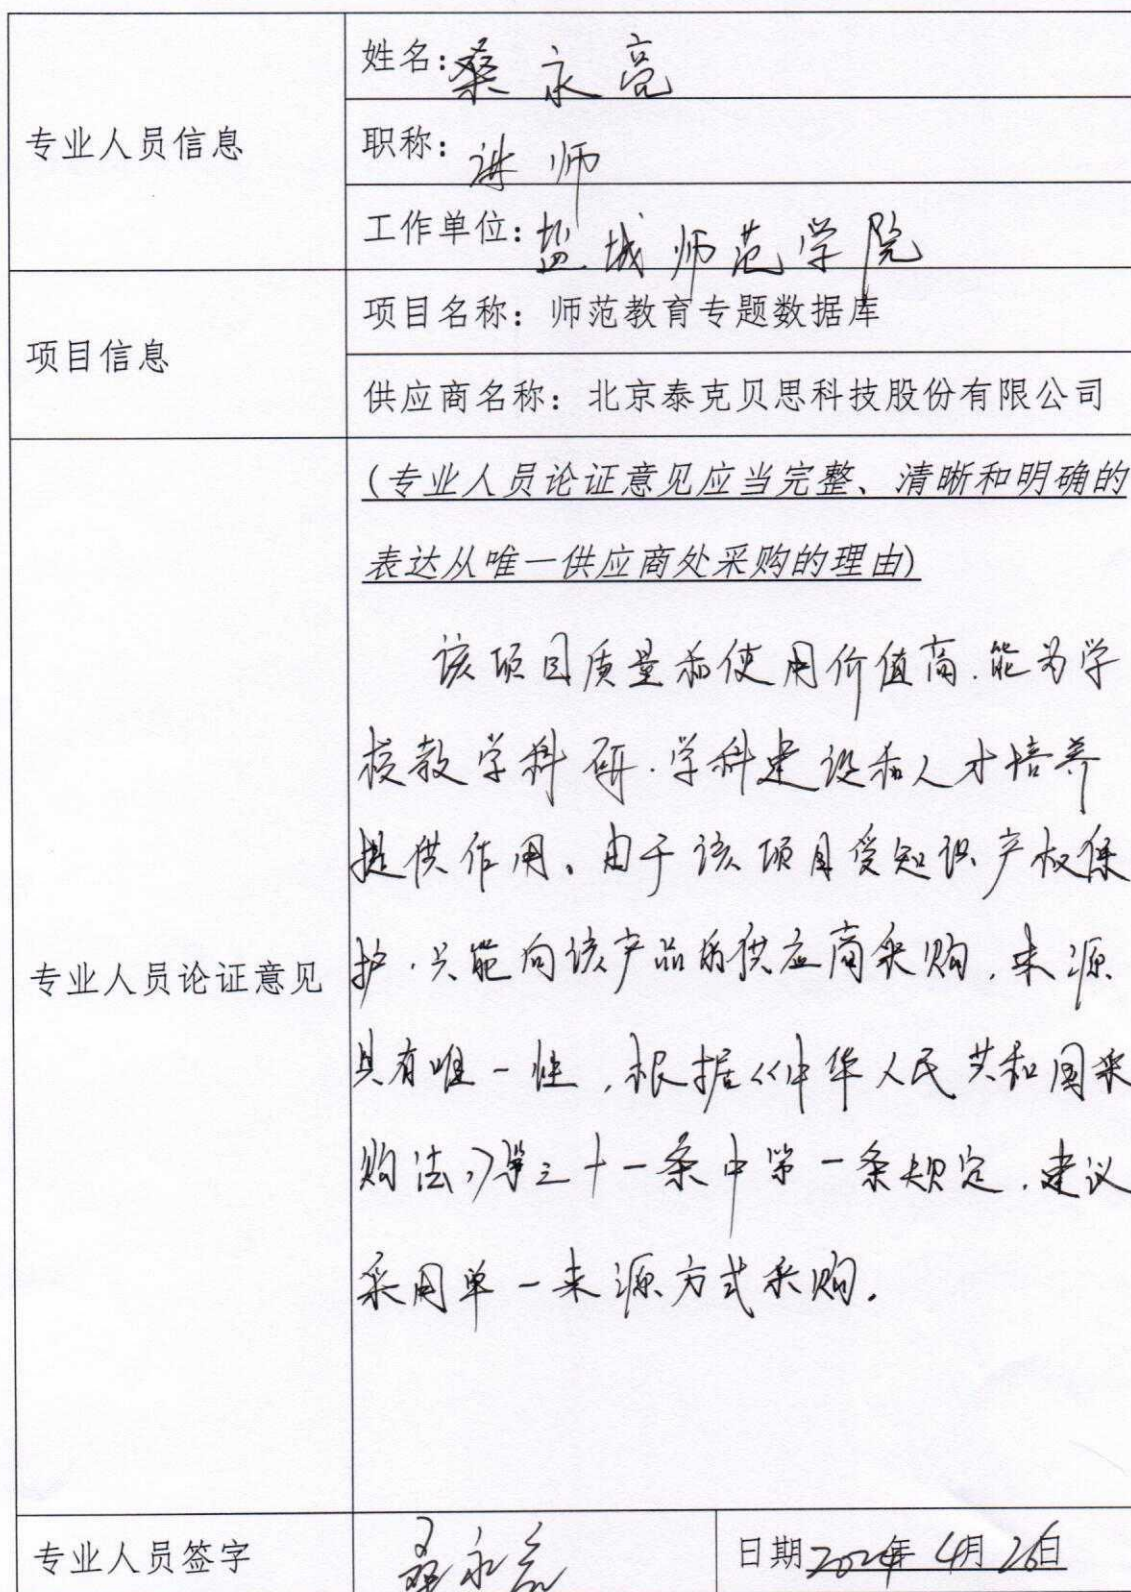 专业人员信息
姓名:桑永亮
职称:讲师
工作单位:盐城师范学院
项目信息
项目名称:师范教育专题数据库
供应商名称:北京泰克贝思科技股份有限公司
专业人员论证意见
(专业人员论证意见应当完整、清晰和明确的
表达从唯一供应商处采购的理由)
该项目质量和使用价值高.能为学
校教学科研.学科建设和人才培养
提供作用。由于该项目受知识产权保
护.只能向该产品的供应商采购.来源
具有唯一性,根据《中华人民共和国采
购法》第三十一条中第一条规定.建议
采用单一来源方式采购.
专业人员签字
桑永亮
日期2024年4月26日